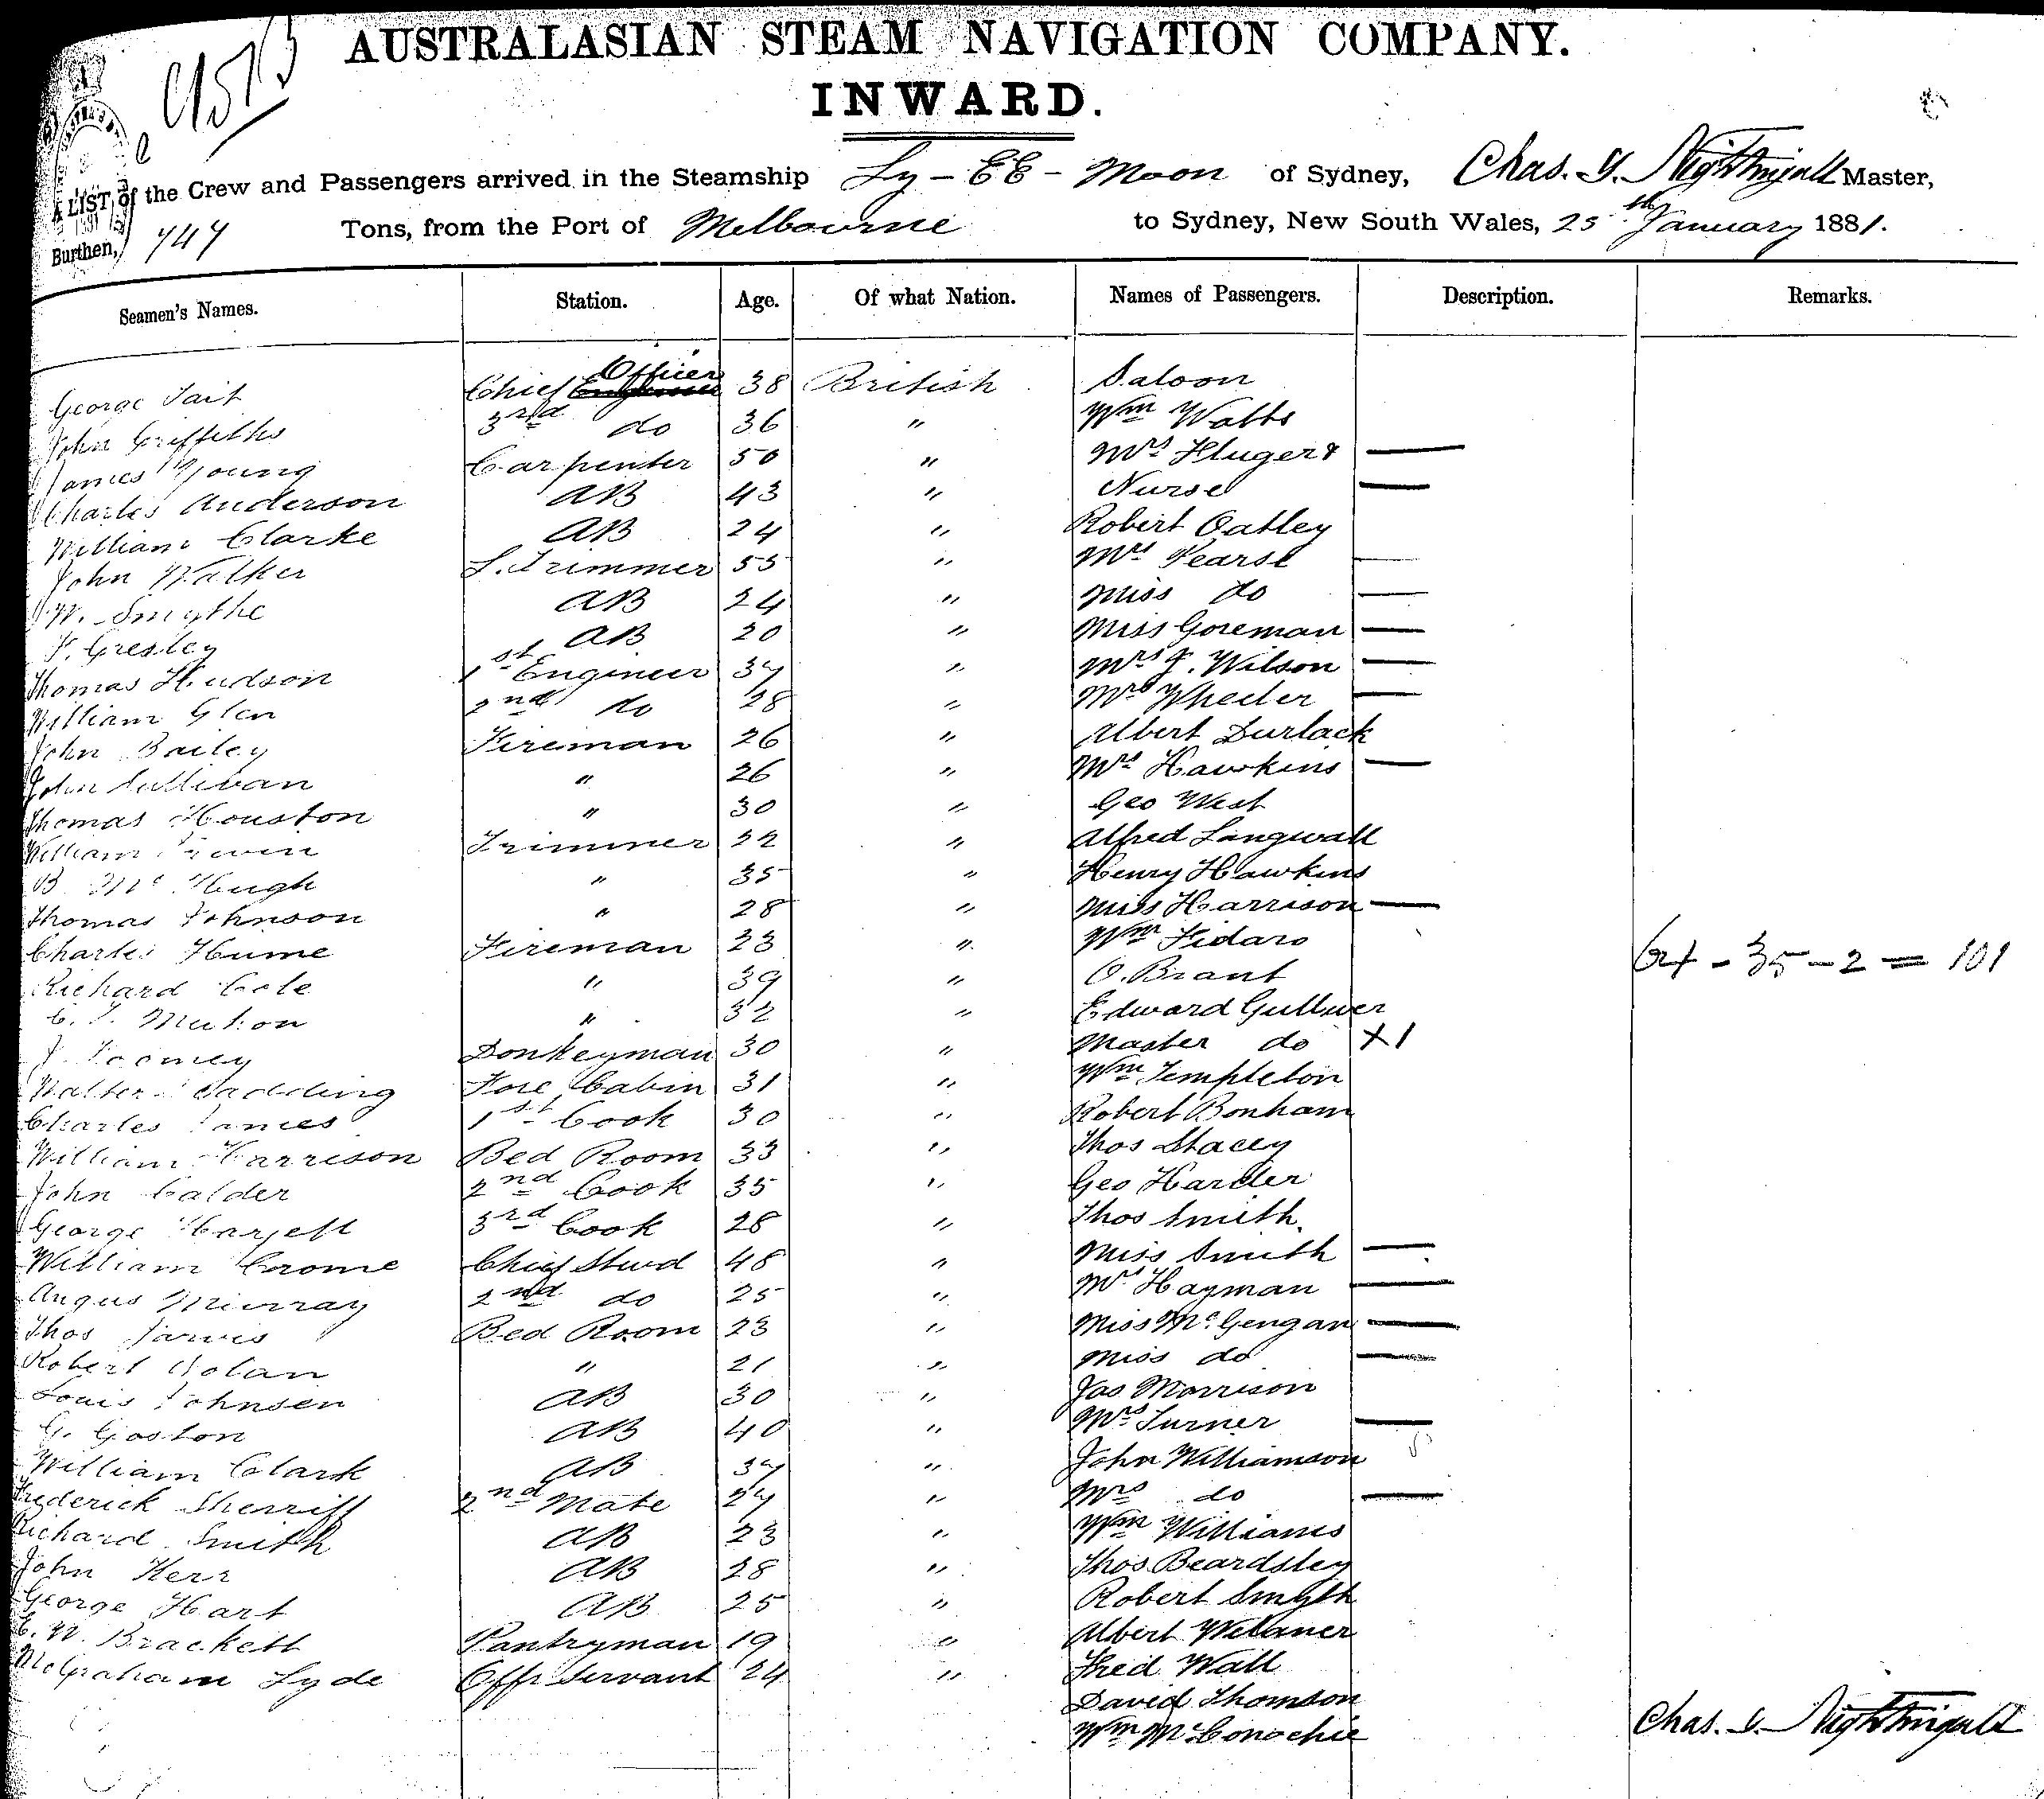 AUSTRALASIAN STEAM NAVIGATION COMPANY.
INWARD.
A LIST of the Crew and Passengers arrived in the Steamship Ly-EE-Moon of Sydney, Chas. J. Nightingall Master,
Burthen, 747 Tons, from the Port of Melbourne to Sydney, New South Wales, 25th January 1881.
Seamen's Names. Station. Age. Of what Nation. Names of Passengers. Description. Remarks.
George Tait Chief Officer 38 British Saloon
John Griffiths 3rd do 36 " Wm Watts
James Young Carpenter 50 " Mrs Kluger & —
Charles Anderson AB 43 " Nurse —
William Clarke AB 24 " Robert Oatley
John Walker L. Trimmer 55 " Mrs Pearse —
W. Smythe AB 24 " Miss do —
F. Gresley AB 20 " Miss Goreman —
Thomas Hudson 1st Engineer 37 " Mrs J. Wilson —
William Glen 2nd do 28 " Mrs Wheeler —
John Bailey Fireman 26 " Albert Durlack
John Sullivan " 26 " Mrs Hawkins —
Thomas Houston " 30 " Geo West
William Trimmer 22 " Alfred Langwall
B. Mc Hugh " 35 " Henry Hawkins
Thomas Johnson " 28 " Miss Harrison —
Charles Hume Fireman 23 " Wm Fidaro
Richard Cole " 39 " O. Brant 64 - 35 - 2 = 101
" 32 " Edward Gulliver
J. Toomey Donkeyman 30 " Master do X1
Walter Fore Cabin 31 " Wm Templeton
Charles James 1st Cook 30 " Robert Bonham
William Harrison Bed Room 33 " Thos Stacey
John Calder 2nd Cook 35 " Geo Harder
George 3rd Cook 28 " Thos Smith.
William Crome Chief Stwd 48 " Miss Smith —
Angus Murray 2nd do 25 " Mrs Hayman —
Thos Jarvis Bed Room 23 " Miss McGengan —
Robert Dolan " 21 " Miss do —
Louis Johnsen AB 30 " Jas Morrison
G. Goston AB 40 " Mrs Turner —
William Clark AB 37 " John Williamson
Frederick Sherriff 2nd Mate 27 " Mrs do —
Richard Smith AB 23 " Wm Williams
John Kerr AB 28 " Thos Beardsley
George Hart AB 25 " Robert Smyth
C. W. Brackett Pantryman 19 " Albert
McGraham Lyde Offr Servant 24 " Fred Wall
David Thomson
Wm McConochie
Chas. J. Nightingall